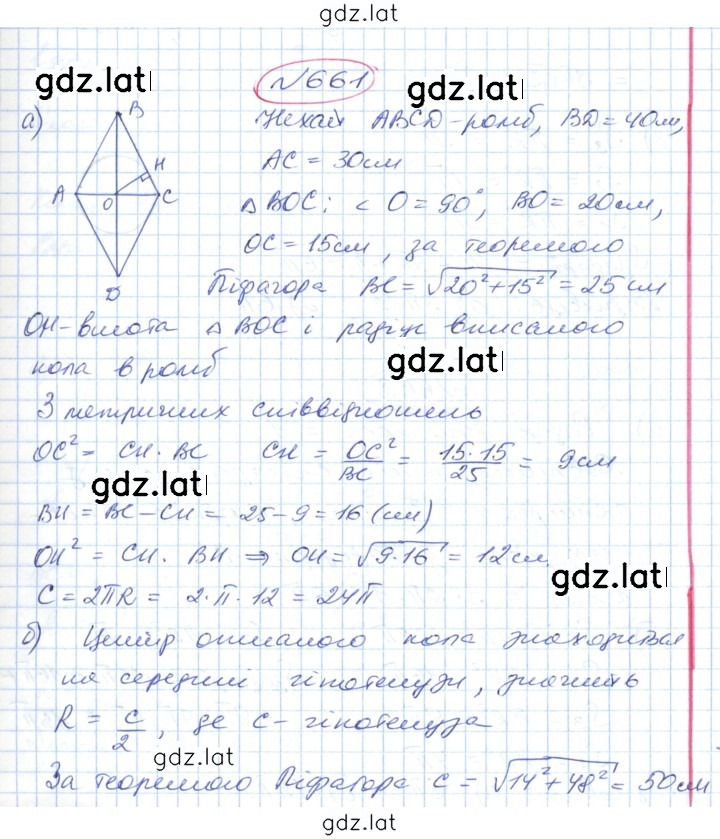 gdz.lat
gdz.lat gdz.lat
№661
а) B H A O C D
Нехай ABCD - ромб, BD = 40см,
AC = 30см
△ BOC: < O = 90°, BO = 20см,
OC = 15см, за теоремою
Піфагора BC = √20²+15² = 25 см
OH - висота △ BOC і радіус вписаного
кола в ромб
gdz.lat
З метричних співвідношень
OC² = CH · BC CH = OC²/BC = 15·15/25 = 9см
gdz.lat
BH = BC - CH = 25 - 9 = 16 (см)
OH² = CH · BH ⇒ OH = √9·16 = 12см
gdz.lat
C = 2πR = 2·π·12 = 24π
б) Центр описаного кола знаходиться
на середині гіпотенузи, значить
R = c/2, де c - гіпотенуза
gdz.lat
За теоремою Піфагора c = √14²+48² = 50см
gdz.lat